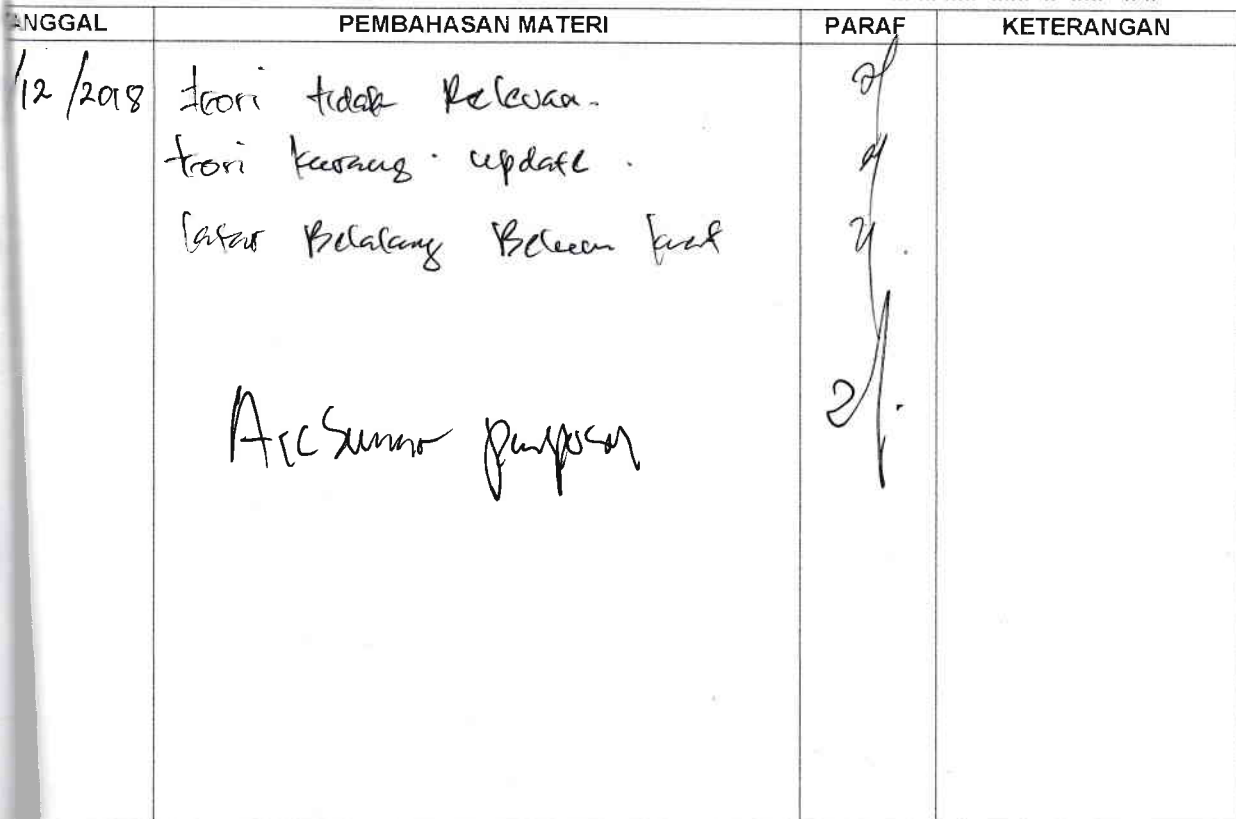 ANGGAL PEMBAHASAN MATERI PARAF KETERANGAN
/12/2018 teori tidak Relevan.
teori kurang update.
latar Belakang Belum kuat
Acc